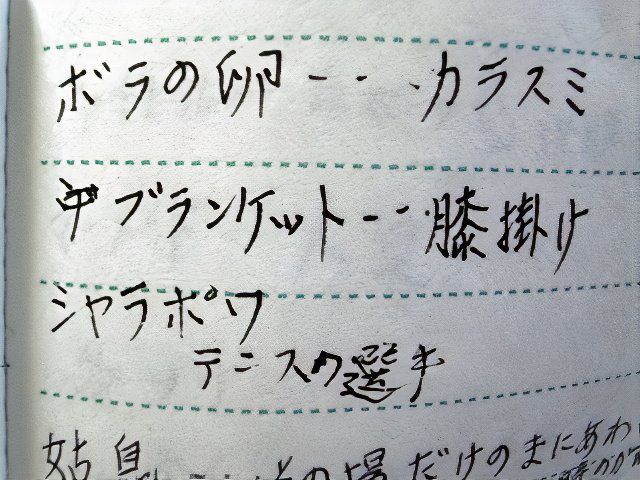 ボラの卵‐‐‐カラスミ
ブランケット‐‐‐膝掛け
シャラポワ
テニスの選手
姑息 その場だけのまにあわ